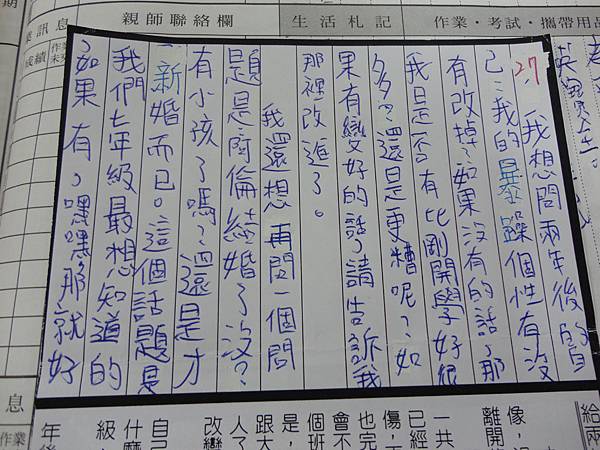 親師聯絡欄
生活札記
作業・考試・攜帶用品
訊息
成績
27. 我想問兩年後的自
己:我的暴躁個性有沒
有改掉?如果沒有的話,那
我是否有比剛開學好很
多?還是更糟呢?如
果有變好的話,請告訴我
那裡改進了。
我還想再問一個問
題是:阿倫結婚了沒?
有小孩了嗎?還是才
新婚而已。這個話題是
我們七年級最想知道的
,如果有,嘿嘿那就好
給兩
像,
離開
一共
已經
傷,
也完
會不
個班
是,
跟大
人了
改變
自己
什麼
級,
年後
息
作業